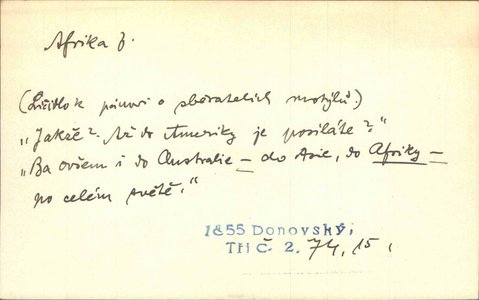 Afrika ž.
(Žičitlo k pánovi o sběratelích motýlů.)
„Jakže? Až do Ameriky je posíláte?"
„Ba ovšem i do Australie – do Asie, do Afriky –
po celém světě."
1855 Donovský,
Tři č. 2. 74, 15,